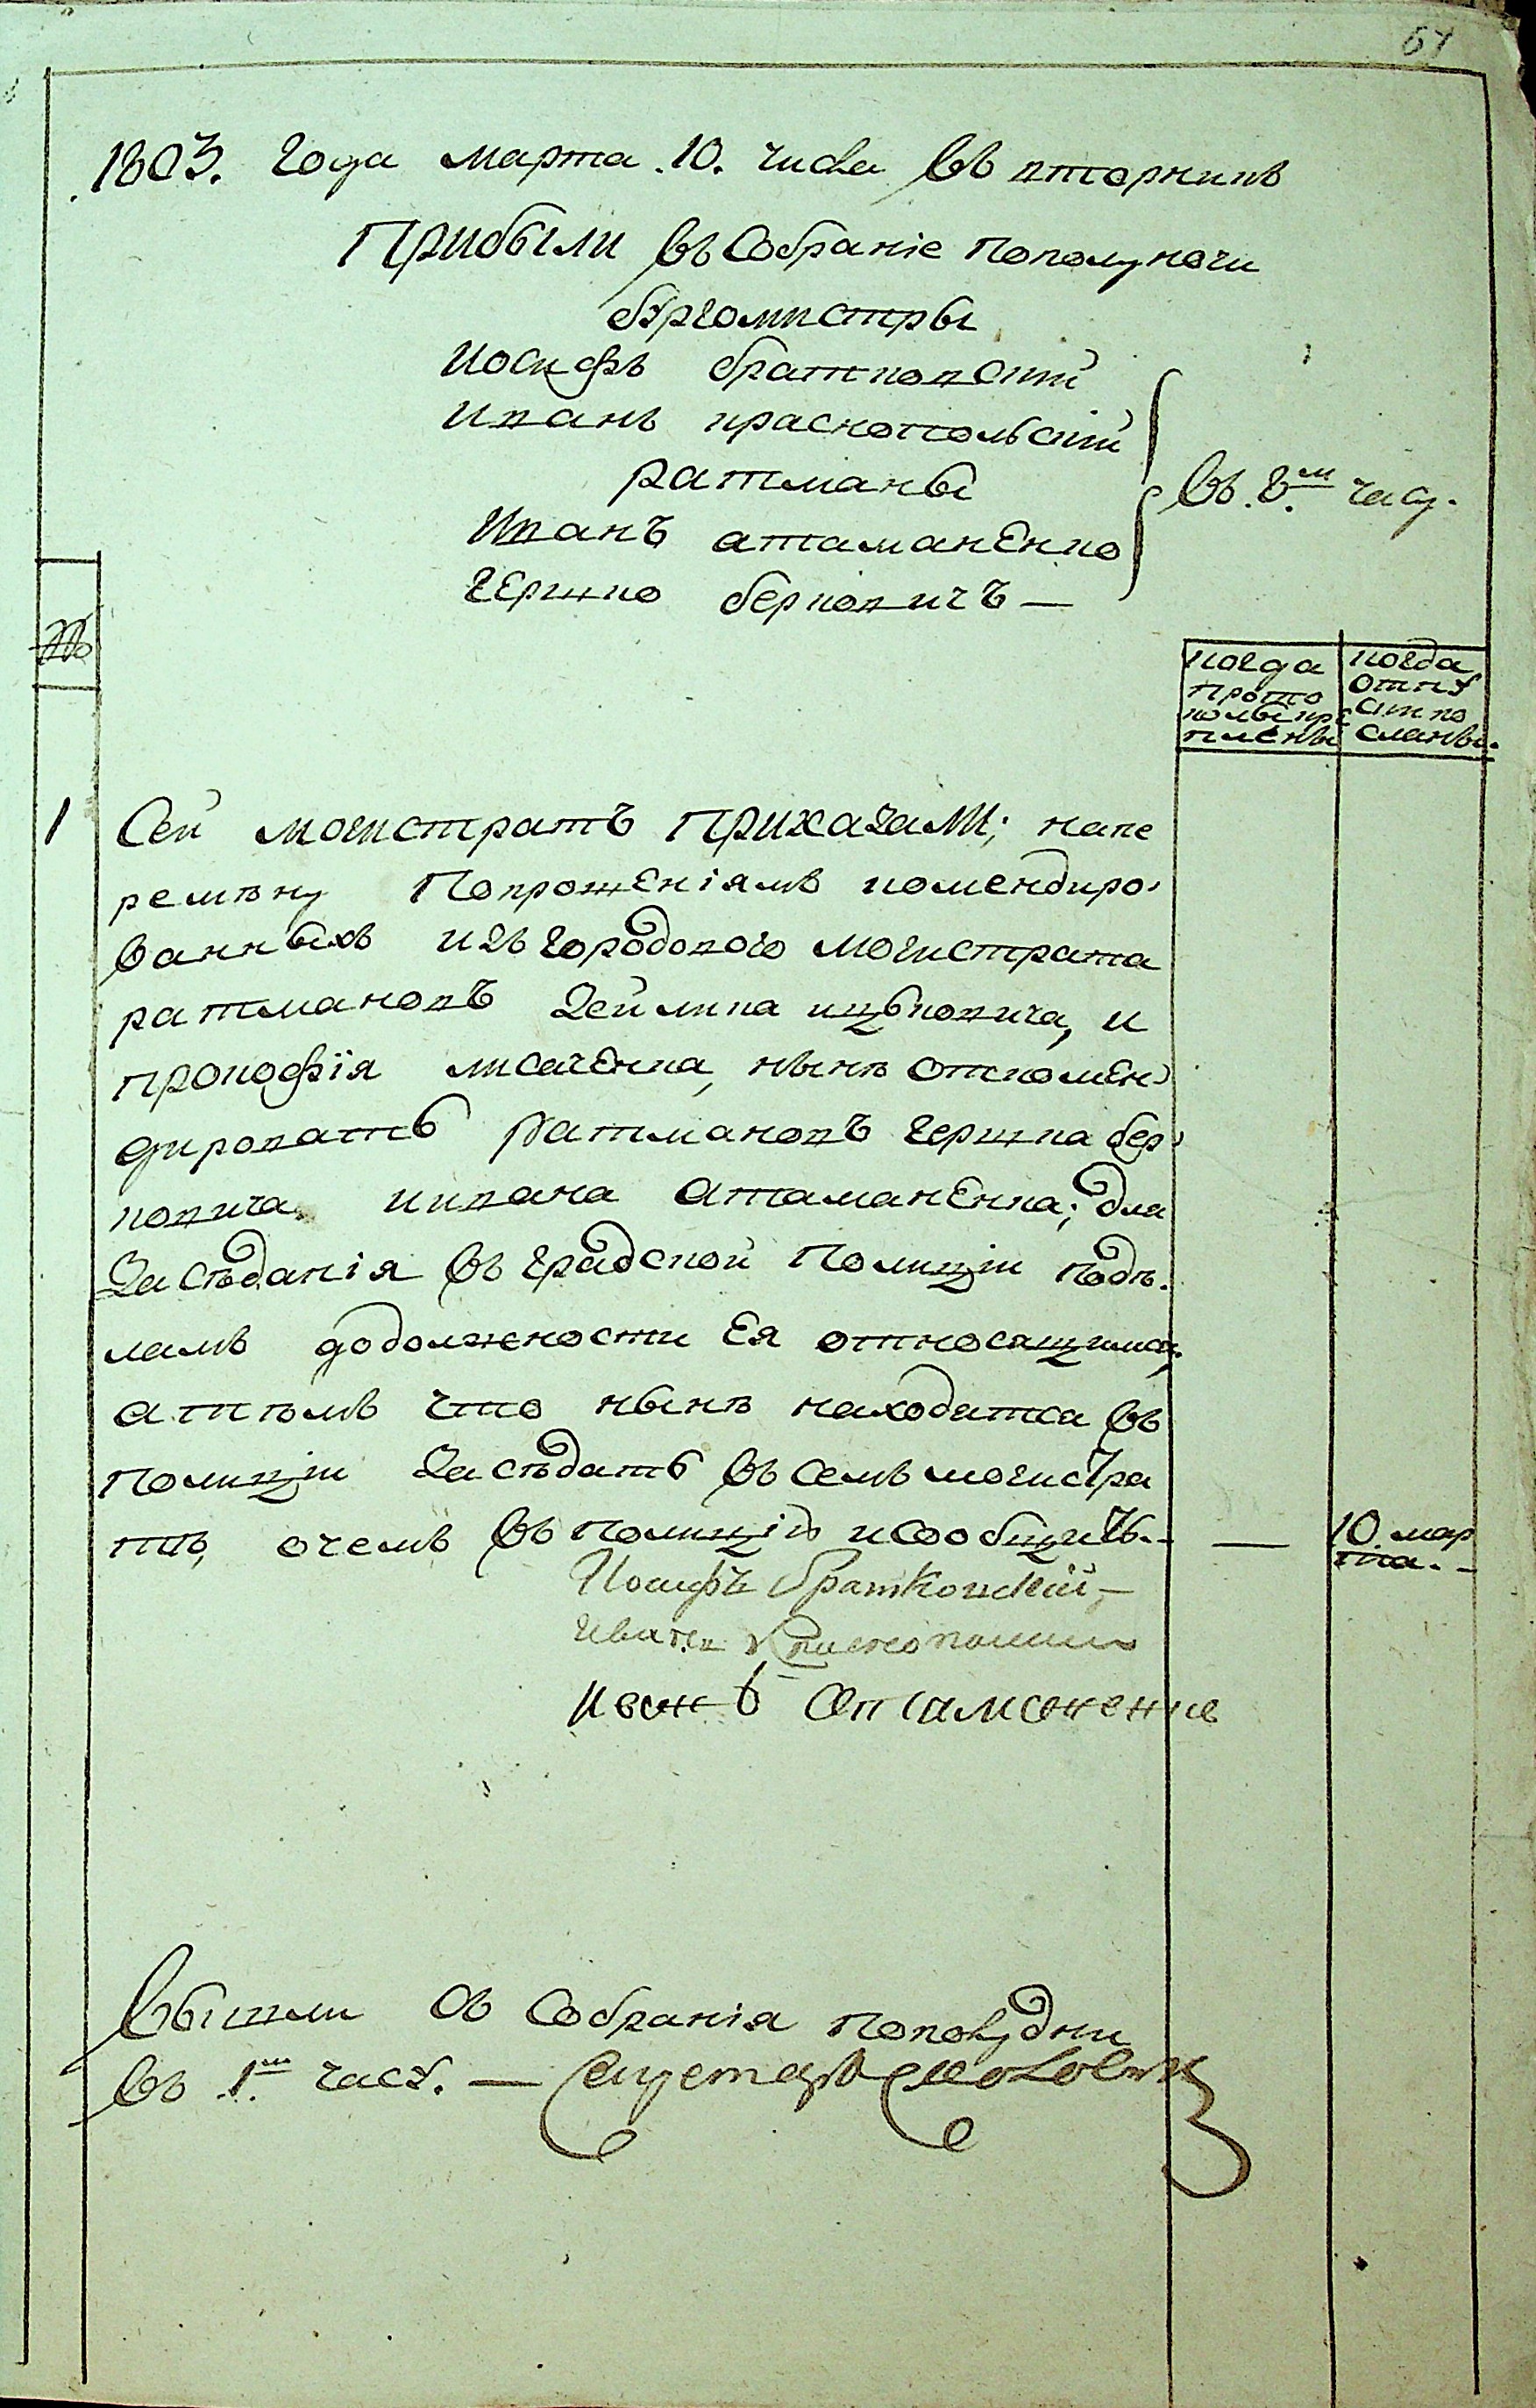 1803. Года марта .10. числа въ вторникъ
Прибыли въ Собраніе пополуночи
бургомистры
Иосифъ братковский
Иванъ краснопольский
ратманы
въ .8.м часу.
Иванъ атаманенко
гершко берковичъ —
№
когда прото колы кре плены
когда отпу ски по сланы.
1 Сей могистратъ Приказали; напе
ремѣну Попрошеніямъ комендиро,
ванныхъ изъ городового могистрата
ратмановъ Зейлика ицковича, и
прокофія лисаченка, нынѣ откомен,
дировать ратмановъ гершка бер,
ковича, ивана атаманенка; для
Засѣданія въ градской Полиціи подѣ.
ламъ додолжности Ея относящимся,
атѣмъ что нынѣ находятся въ
Полиціи Засѣдать въ семъ могистра
тѣ, очемъ въ полицію исообщить. — — 10. мар та. -
Иосифъ Братковский, —
Иванъ
Иванъ Отаманенко
Вышли съ Собранія пополудни
въ .1.м часу. —